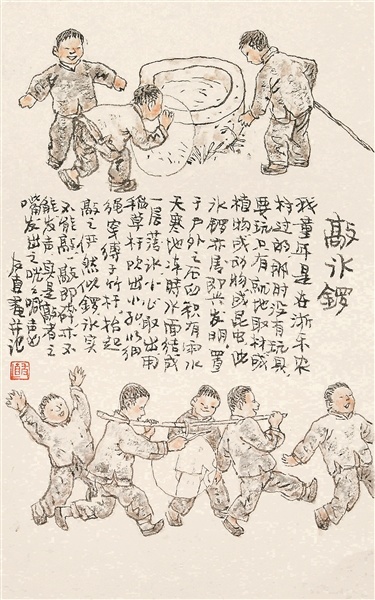 敲冰锣
我童年是在浙东农
村过的那时没有玩具
要玩只有就地取材或
植物或动物或昆虫此
冰锣亦属即兴发明置
于户外之石凼积有雨水
天寒地冻时水面结成
一层薄冰小心取出用
稻草杆吹出小孔以细
绳穿缚于竹杆抬起
敲之俨然似锣冰实
不能敲敲即碎亦不
能发声真是敲者之
嘴发出之咣咣声也
友直画并记